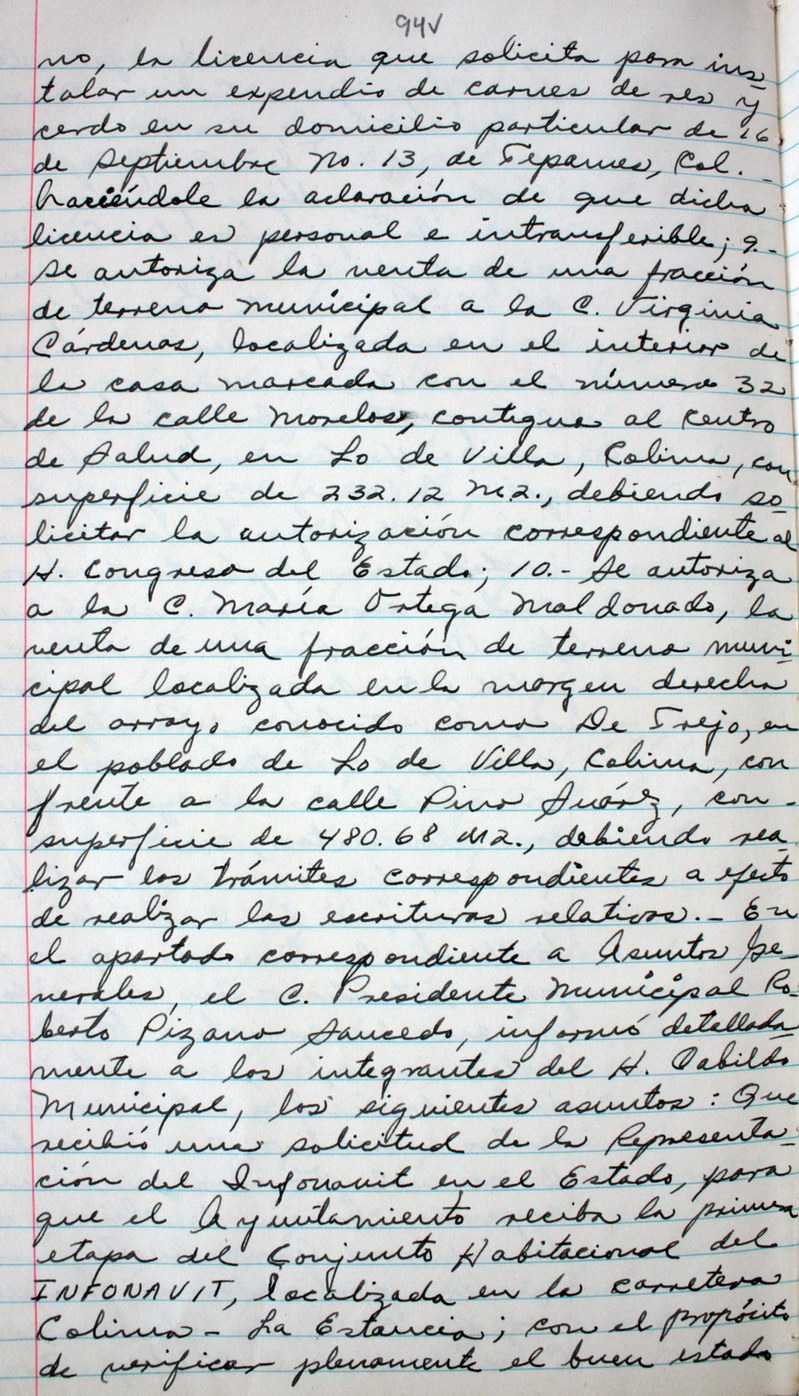 94V
no, la licencia que solicita para ins-
talar un expendio de carnes de res y
cerdo en su domicilio particular de 16
de Septiembre No. 13, de Tepames, Col. -
haciéndole la aclaración de que dicha
licencia es personal e intransferible; 9.-
Se autoriza la venta de una fracción
de terreno municipal a la C. Virginia
Cárdenas, localizada en el interior de
la casa marcada con el número 32
de la calle Morelos, contigua al Centro
de Salud, en Lo de Villa, Colima, con
superficie de 232.12 M2., debiendo so-
licitar la autorización correspondiente al
H. Congreso del Estado; 10.- Se autoriza
a la C. María Ortega Maldonado, la
venta de una fracción de terreno muni-
cipal localizada en la margen derecha
del arroyo conocido como De Trejo, en
el poblado de Lo de Villa, Colima, con
frente a la calle Pino Suárez, con -
superficie de 480.68 M2., debiendo rea-
lizar los trámites correspondientes a efecto
de realizar las escrituras relativas. - En
el apartado correspondiente a Asuntos Ge-
nerales, el C. Presidente Municipal Ro-
berto Pizano Saucedo, informó detallada-
mente a los integrantes del H. Cabildo
Municipal, los siguientes asuntos: Que
recibió una solicitud de la Representa-
ción del Infonavit en el Estado, para
que el Ayuntamiento reciba la primera
etapa del Conjunto Habitacional del
INFONAVIT, localizada en la carretera
Colima - La Estancia; con el propósito
de verificar plenamente el buen estado